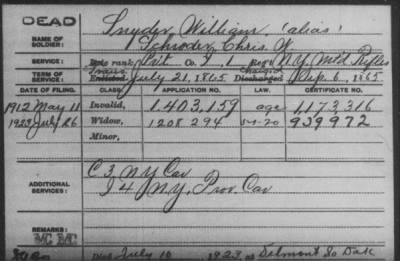 DEAD
Snyder, William. (alias)
NAME OF SOLDIER: Schroder, Chris. W.
SERVICE: Late rank, Pvt Co. I, 1 Reg't N.Y. Mt'd Rifles
TERM OF SERVICE: Enlisted July 21, 1865 Discharged Sep. 6, 1865
DATE OF FILING. CLASS. APPLICATION NO. LAW. CERTIFICATE NO.
1912 May 11 Invalid, 1.403.159 age 1,173,316
1923 July 26 Widow, 1208294 5-1-20 939972
Minor,
C 3, N Y Cav
ADDITIONAL SERVICES: I 4, N.Y. Prov. Cav
REMARKS:
MC MC
Died July 10 1923, at Delmont So Dak